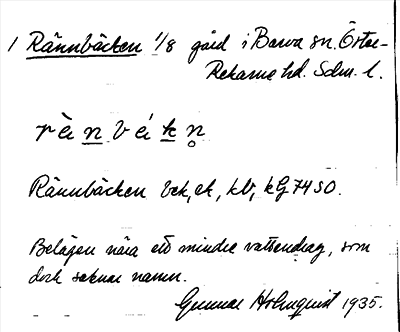 1 Rännbäcken 1/8 gård i Barva sn. Öster-
Rekarne hd. Sdm. l.
rènvék̲n̥
Rännbäcken bck, ek, kb, kG 74 SO.
Belägen nära ett mindre vattendrag, som
dock saknar namn.
Gunnar Holmquist 1935.